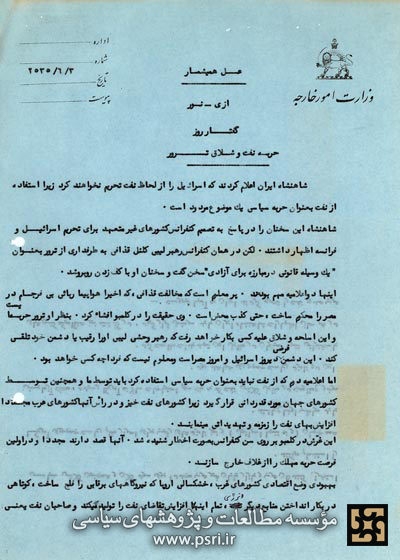 وزارت امور خارجه
اداره
شماره
تاریخ ۲۵۳۵/۶/۳
پیوست
عل همیشمار
ازی - نور
گفتار روز
حربه نفت و شلاق ترور
شاهنشاه ایران اعلام کردند که اسرائیل را از لحاظ نفت تحریم نخواهند کرد زیرا استفاده
از نفت بعنوان حربه سیاسی یک موضوع مردود است .
شاهنشاه این سخنان را در پاسخ به تصمیم کنفرانس کشورهای غیر متعهد برای تحریم اسرائیل و
فرانسه اظهار داشتند . لکن در همان کنفرانس رهبر لیبی کلنل قذافی به طرفداری از ترور بعنوان
"یک وسیله قانونی در مبارزه برای آزادی" سخن گفت و سخنان او با کف زدن روبرو شد .
اینها دو اعلامیه مهم بودند . پر معلوم است که مخالفت قذافی ، که اخیرا هواپیما ربائی بی فرجام در
مصر را محکوم ساخت ، حتی کذب محض است . وی حقیقت را در کلمبو افشا کرد . بنظر او ترور حربه
و این اسلحه و شلاق علیه کسی بکار خواهد رفت که رهبر وحشی لیبی او را رقیب یا دشمن خود تلقی
کند . این دشمن فرضی دیروز اسرائیل و امروز مصر است و معلوم نیست که فردا چه کسی خواهد بود .
اما اعلامیه دیم که از نفت نباید بعنوان حربه سیاسی استفاده کرد باید توسط ما و همچنین توسط
کشورهای جهان مورد قدردانی قرار گیرد زیرا کشورهای نفت خیز و در راس آنها کشورهای عرب مجددا
افزایش بهای نفت را زمزمه و تهدیداتی مینمایند .
این غرش در کلمبو بر روی سن کنفرانس بصورت اخطار شنیده شد . آنها قصد دارند مجددا و در اولین
فرصت حربه مهلک را از غلاف خارج سازند .
بهبودی وضع اقتصادی کشورهای غرب ، خشکسالی اروپا که نیروگاههای برقابی را فلج ساخت ، کوتاهی
در بکار انداختن منابع دیگر انرژی ، تمام اینها افزایش تقاضای نفت را تولید میکند و صاحبان نفت یعنی
مؤسسه مطالعات و پژوهشهای سیاسی
www.psri.ir